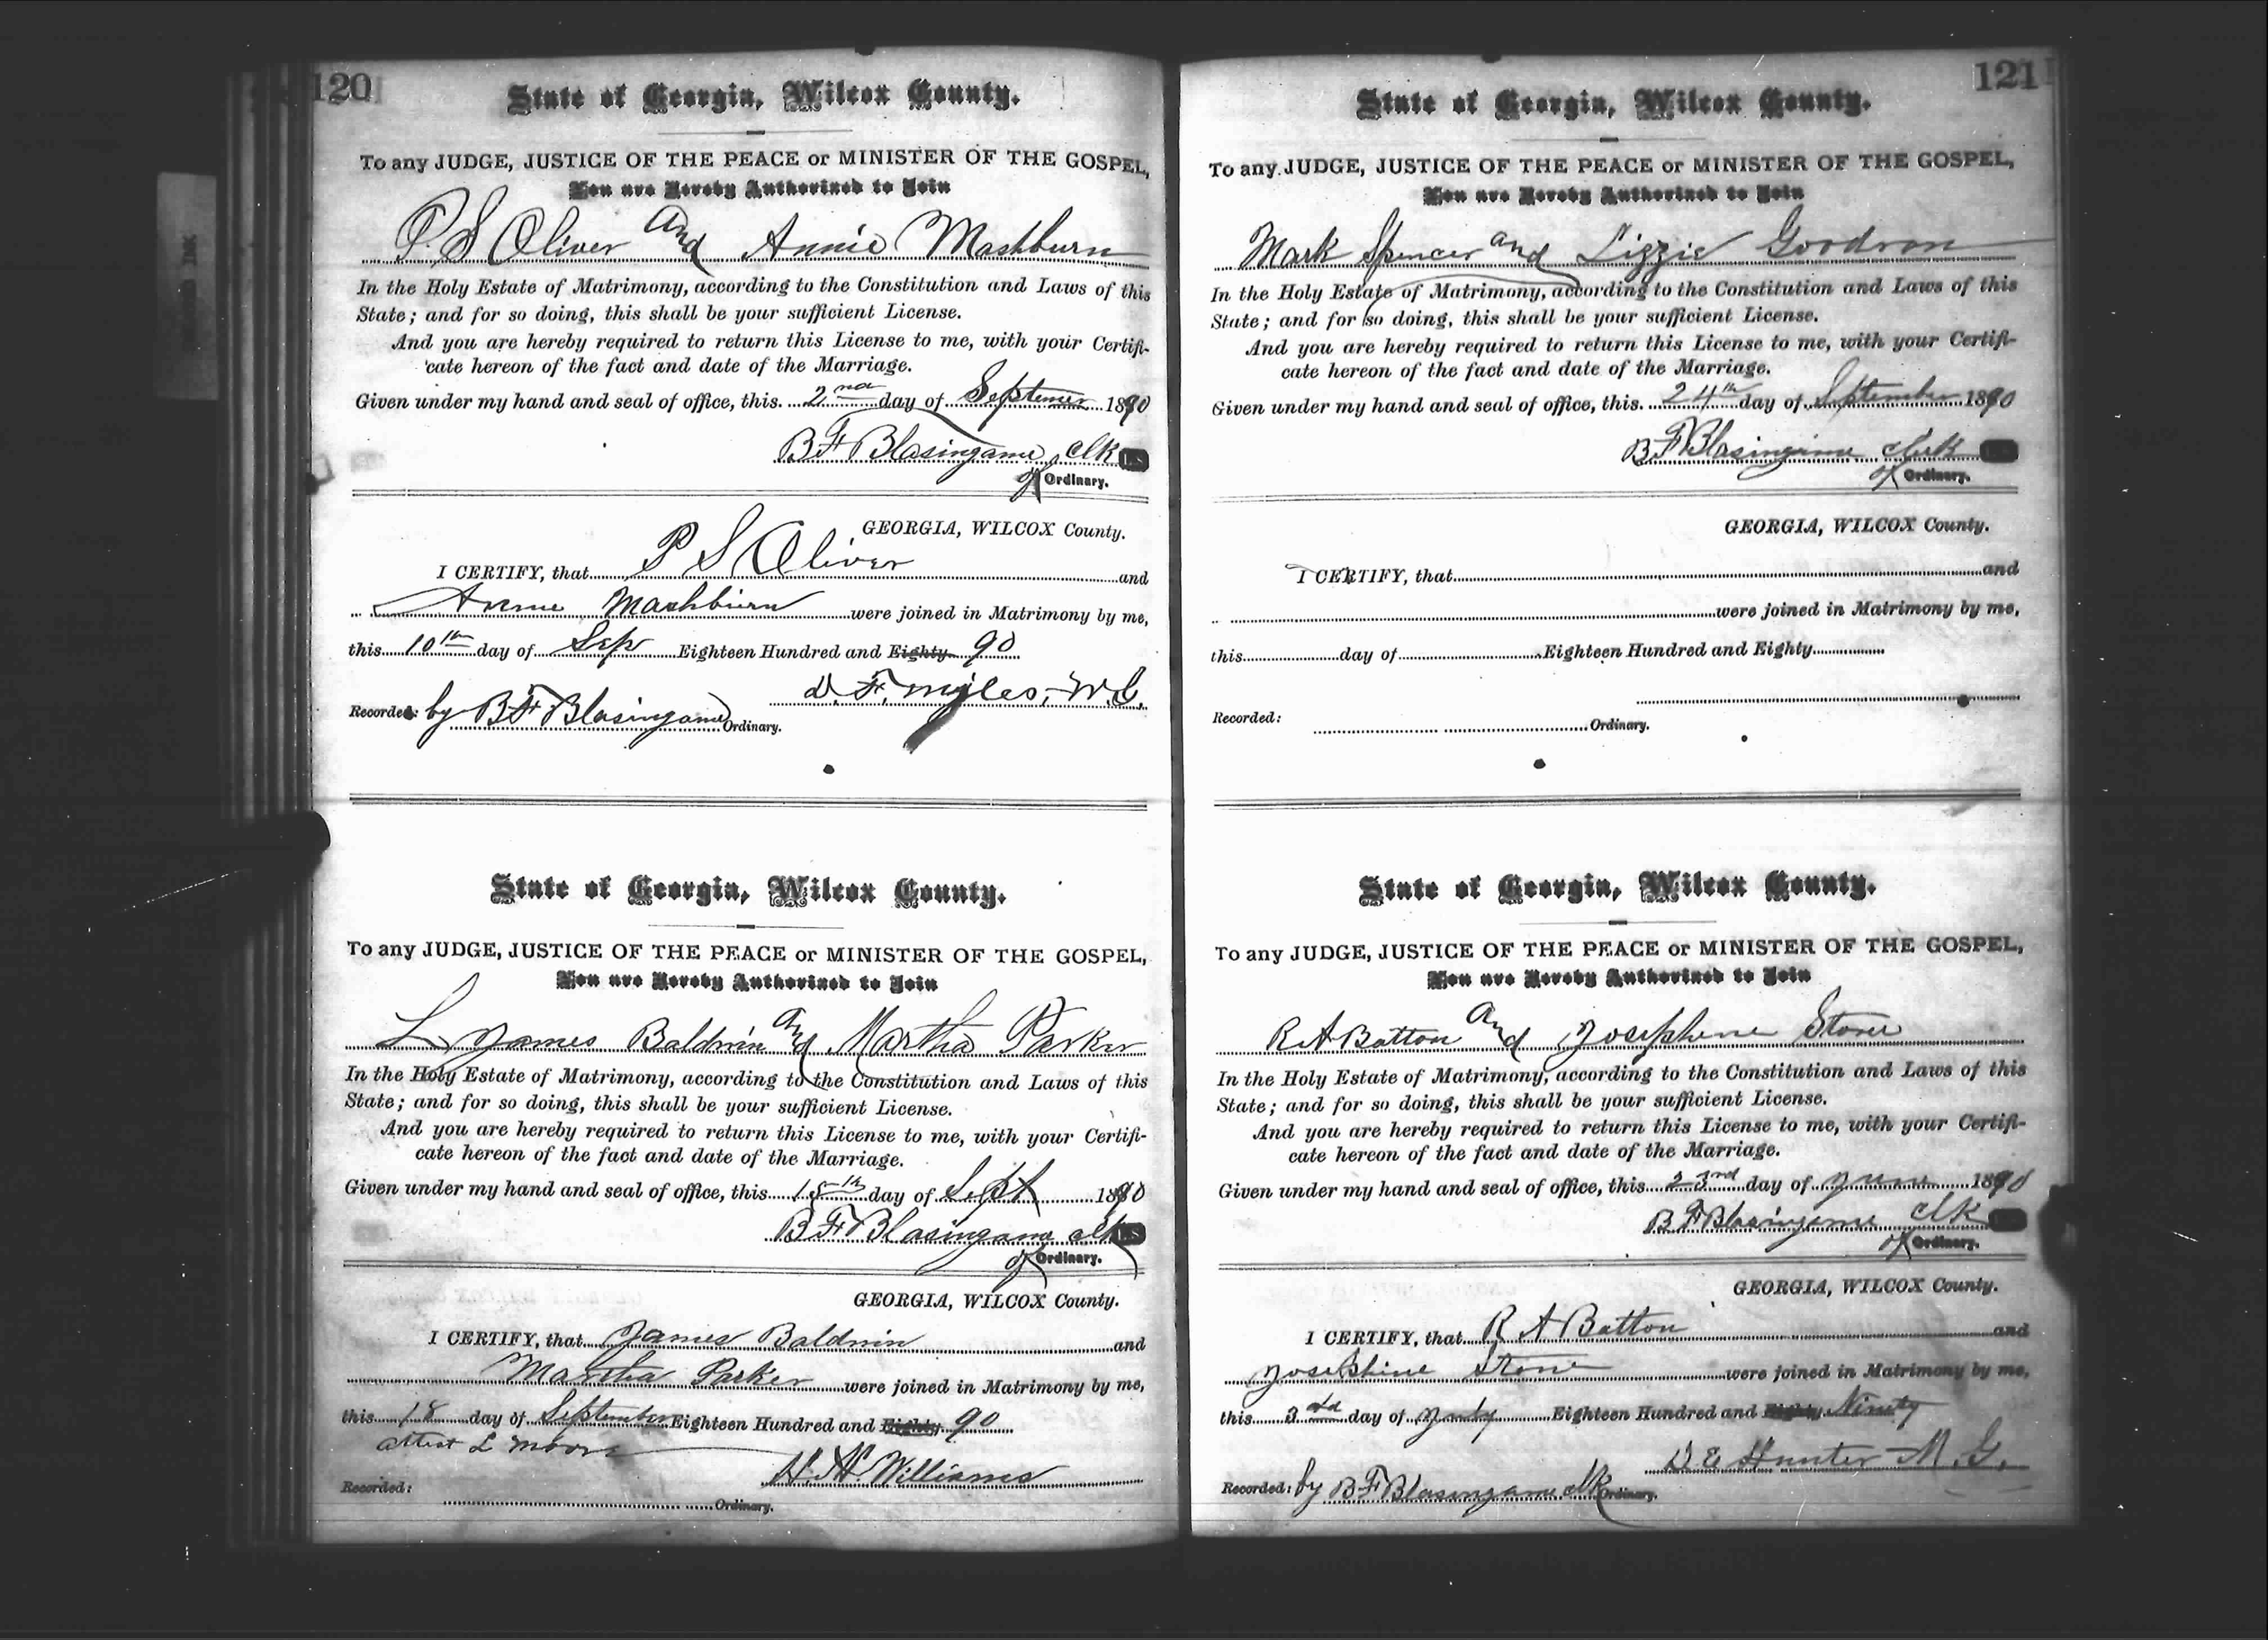 120
State of Georgia, Wilcox County.
To any JUDGE, JUSTICE OF THE PEACE or MINISTER OF THE GOSPEL,
You are Hereby Authorized to Join
P. S Oliver and Annie Mashburn
In the Holy Estate of Matrimony, according to the Constitution and Laws of this
State; and for so doing, this shall be your sufficient License.
And you are hereby required to return this License to me, with your Certifi-
cate hereon of the fact and date of the Marriage.
Given under my hand and seal of office, this 2nd day of Septemer 1890
B F Blasingame clk LS
of Ordinary.
GEORGIA, WILCOX County.
I CERTIFY, that P S Oliver and
Annie Mashburn were joined in Matrimony by me,
this 10th day of Sep Eighteen Hundred and Eighty 90
D. F. Myles, M.G.
Recorded: by B F Blasingame Ordinary.
State of Georgia, Wilcox County.
To any JUDGE, JUSTICE OF THE PEACE or MINISTER OF THE GOSPEL,
You are Hereby Authorized to Join
L James Baldwin and Martha Parker
In the Holy Estate of Matrimony, according to the Constitution and Laws of this
State; and for so doing, this shall be your sufficient License.
And you are hereby required to return this License to me, with your Certifi-
cate hereon of the fact and date of the Marriage.
Given under my hand and seal of office, this 18th day of Sept 1890
B F Blasingame clk LS
of Ordinary.
GEORGIA, WILCOX County.
I CERTIFY, that James Baldwin and
Martha Parker were joined in Matrimony by me,
this 18 day of September Eighteen Hundred and Eighty 90
attest L Moore
H. H. Williams
Recorded: Ordinary.
121
State of Georgia, Wilcox County.
To any JUDGE, JUSTICE OF THE PEACE or MINISTER OF THE GOSPEL,
You are Hereby Authorized to Join
Mark Spencer and Lizzie Goodson
In the Holy Estate of Matrimony, according to the Constitution and Laws of this
State; and for so doing, this shall be your sufficient License.
And you are hereby required to return this License to me, with your Certifi-
cate hereon of the fact and date of the Marriage.
Given under my hand and seal of office, this 24th day of September 1890
B F Blasingame clerk
of Ordinary.
GEORGIA, WILCOX County.
I CERTIFY, that and
were joined in Matrimony by me,
this day of Eighteen Hundred and Eighty
Recorded:
Ordinary.
State of Georgia, Wilcox County.
To any JUDGE, JUSTICE OF THE PEACE or MINISTER OF THE GOSPEL,
You are Hereby Authorized to Join
R A Batton and Josephine Stone
In the Holy Estate of Matrimony, according to the Constitution and Laws of this
State; and for so doing, this shall be your sufficient License.
And you are hereby required to return this License to me, with your Certifi-
cate hereon of the fact and date of the Marriage.
Given under my hand and seal of office, this 23rd day of June 1890
B F Blasingame clk
of Ordinary.
GEORGIA, WILCOX County.
I CERTIFY, that R A Batton and
Josephine Stone were joined in Matrimony by me,
this 3rd day of July Eighteen Hundred and Eighty Ninety
D E Hunter M. G.
Recorded: by B F Blasingame clk Ordinary.